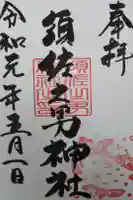 奉拝
須佐之男神社
令和元年五月一日